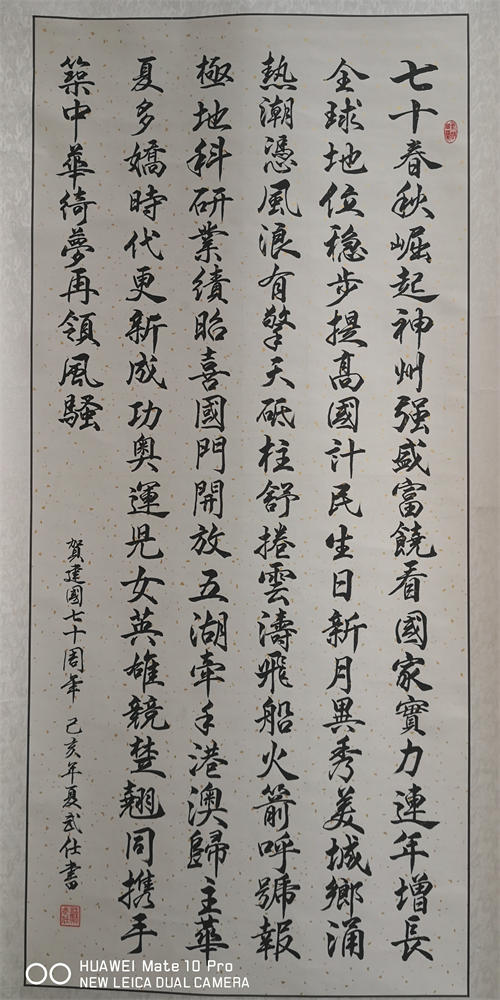 七十春秋崛起神州强盛富饒看國家實力連年增長
全球地位穩步提高國計民生日新月異秀美城鄉涌
熱潮憑風浪有擎天砥柱舒捲雲濤飛船火箭呼號報
極地科研業績眙喜國門開放五湖牽手港澳歸主華
夏多嬌時代更新成功奧運兒女英雄競楚翹同携手
築中華綺夢再領風騷
賀建國七十周年 己亥年夏武仕書
HUAWEI Mate 10 Pro
NEW LEICA DUAL CAMERA